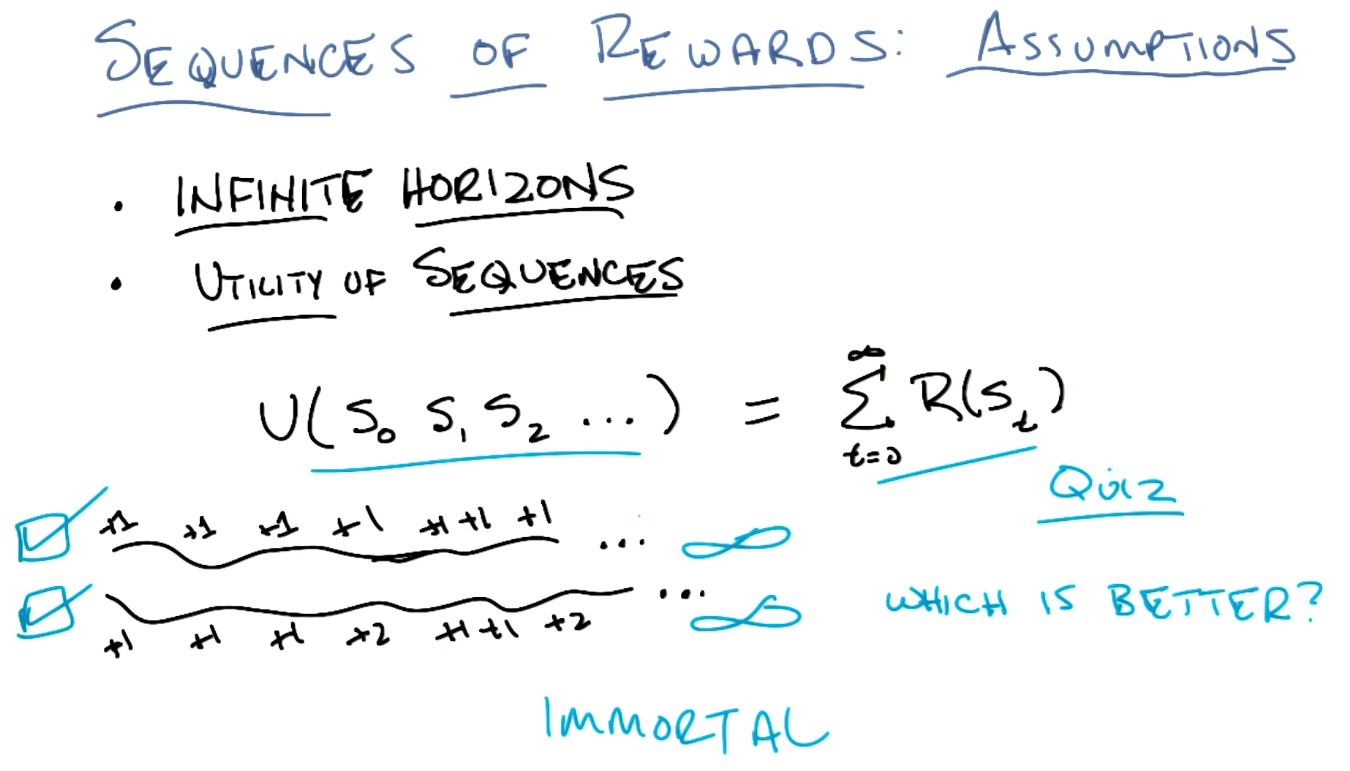 SEQUENCES OF REWARDS: ASSUMPTIONS
• INFINITE HORIZONS
• UTILITY OF SEQUENCES
U(S₀ S₁ S₂ ...) = ∑_{t=0}^{∞} R(S_t)
QUIZ
+1 +1 +1 +1 +1 +1 +1 ... ∞
WHICH IS BETTER?
+1 +1 +1 +2 +1 +1 +2 ... ∞
IMMORTAL